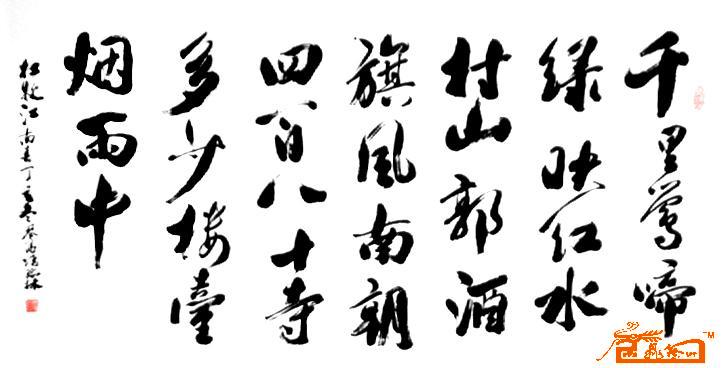 千里莺啼
绿映红水
村山郭酒
旗风南朝
四百八十寺
多少楼台
烟雨中
杜牧江南春丁亥冬